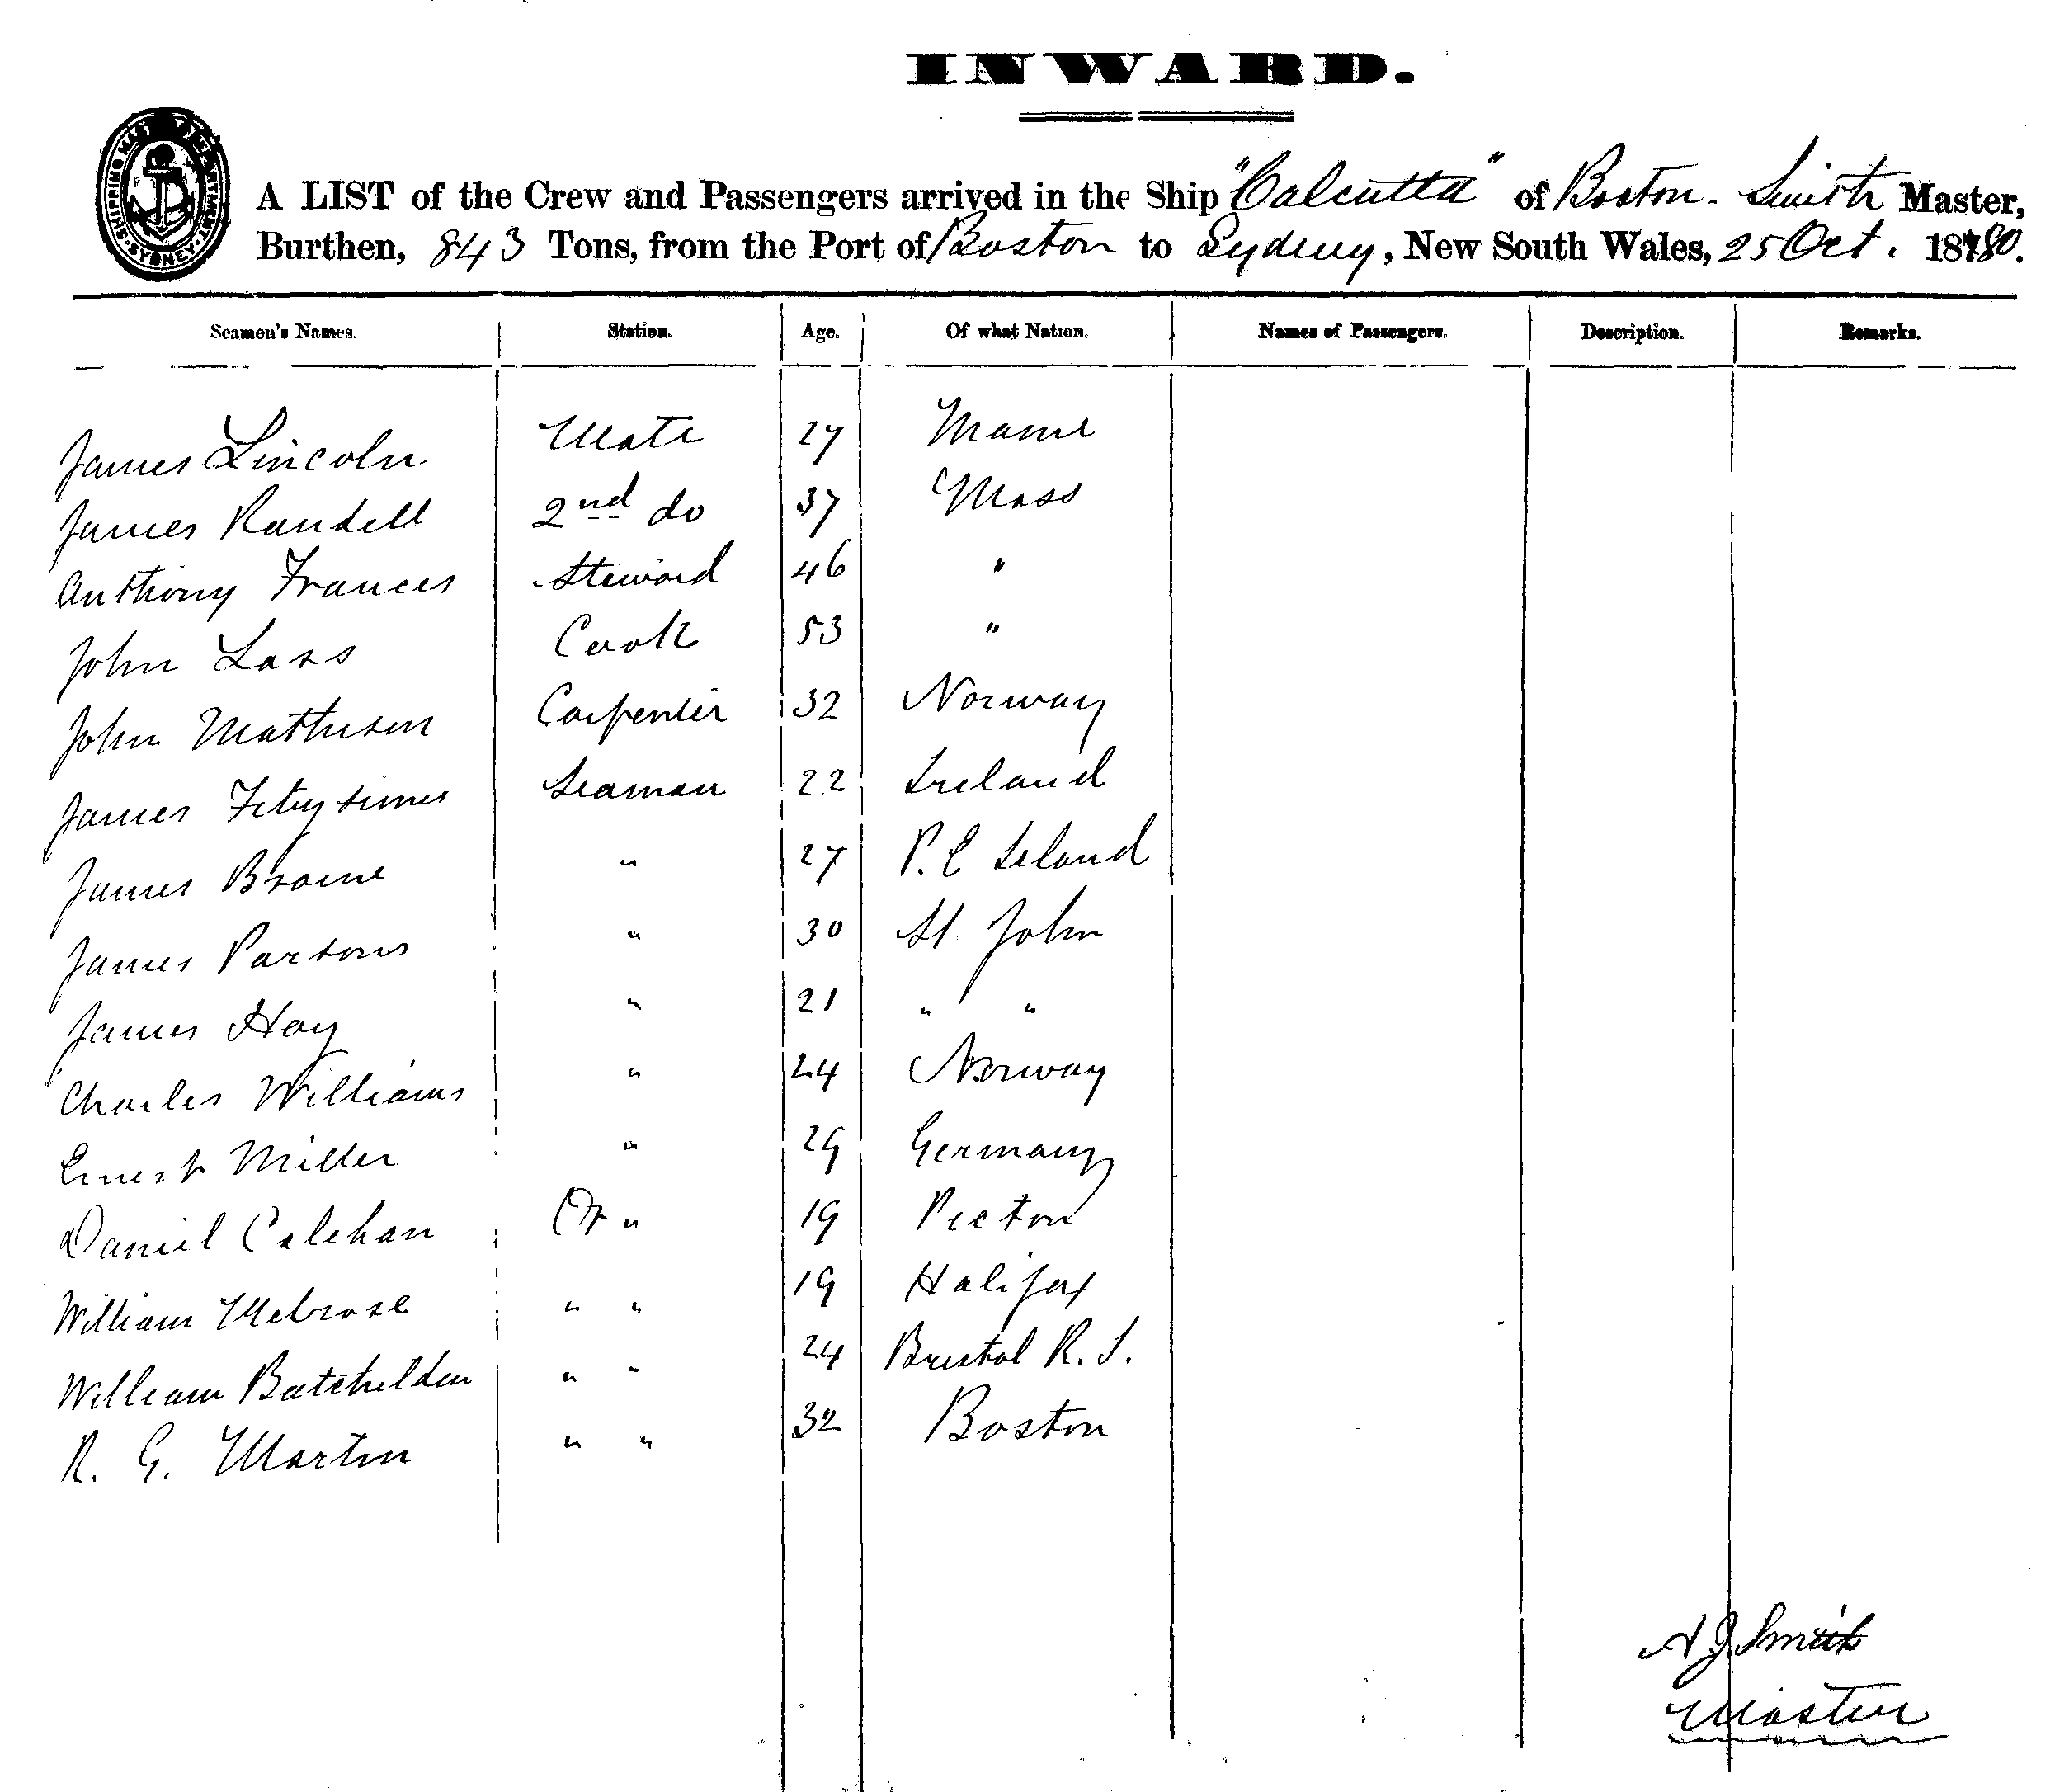 INWARD.
SHIPPING MASTER'S DEPARTMENT · SYDNEY ·
A LIST of the Crew and Passengers arrived in the Ship "Calcutta" of Boston. Smith Master,
Burthen, 843 Tons, from the Port of Boston to Sydney, New South Wales, 25 Oct. 1880.
Seamen's Names. Station. Age. Of what Nation. Names of Passengers. Description. Remarks.
James Lincoln Mate 27 Maine
James Randell 2nd do 37 Mass
Anthony Frances Steward 46 "
John Lass Cook 53 "
John Mathieson Carpenter 32 Norway
James Fitzsimes Seaman 22 Ireland
James Browne " 27 P. E Island
James Parsons " 30 St. John
James Hay " 21 " "
Charles Williams " 24 Norway
Ernest Miller " 29 Germany
Daniel Calehan " 19 Picton
William Melrose " " 19 Halifax
William Batchelder " " 24 Bristol R. I.
R. G. Martin " " 32 Boston
A J Smith
Master